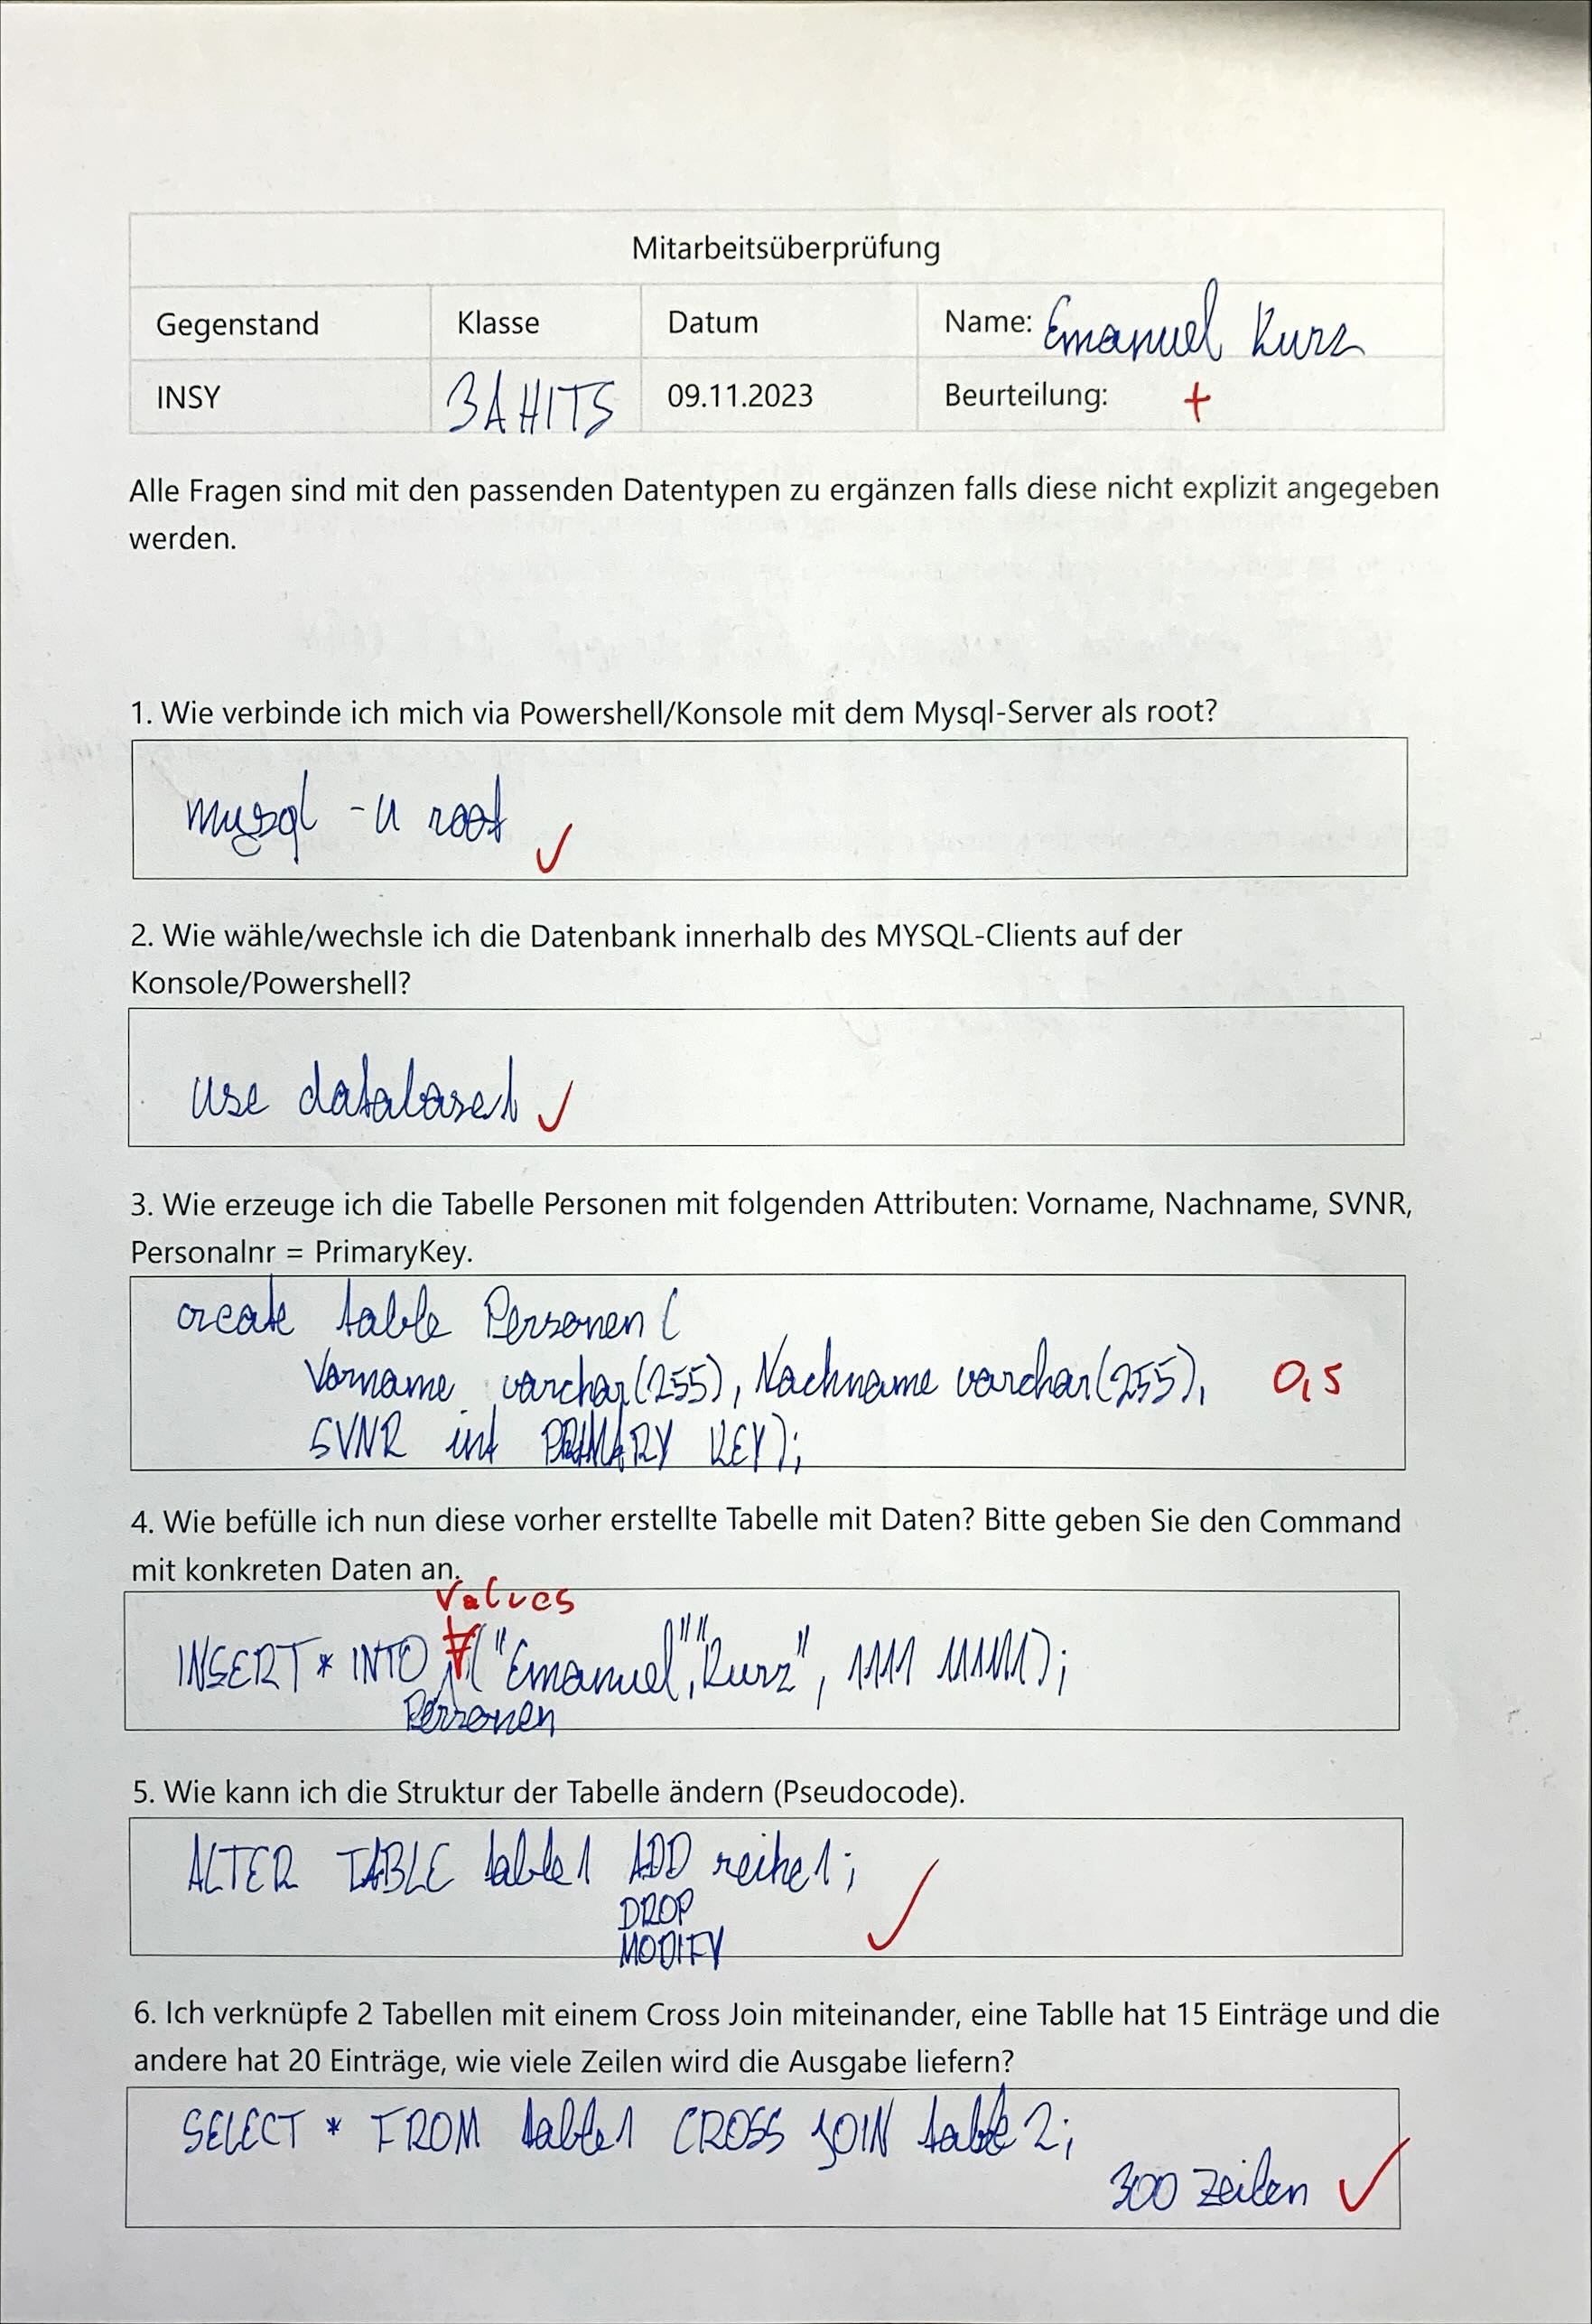 Mitarbeitsüberprüfung
Gegenstand Klasse Datum Name: Emanuel Kurz
INSY 3AHITS 09.11.2023 Beurteilung: +
Alle Fragen sind mit den passenden Datentypen zu ergänzen falls diese nicht explizit angegeben
werden.
1. Wie verbinde ich mich via Powershell/Konsole mit dem Mysql-Server als root?
mysql -u root ✓
2. Wie wähle/wechsle ich die Datenbank innerhalb des MYSQL-Clients auf der
Konsole/Powershell?
use database1 ✓
3. Wie erzeuge ich die Tabelle Personen mit folgenden Attributen: Vorname, Nachname, SVNR,
Personalnr = PrimaryKey.
create table Personen (
Vorname varchar(255), Nachname varchar(255), 0,5
SVNR int PRIMARY KEY);
4. Wie befülle ich nun diese vorher erstellte Tabelle mit Daten? Bitte geben Sie den Command
mit konkreten Daten an.
Values
INSERT * INTO ("Emanuel","Kurz", 1111 111111);
Personen
5. Wie kann ich die Struktur der Tabelle ändern (Pseudocode).
ALTER TABLE table1 ADD reihe1;
DROP
MODIFY ✓
6. Ich verknüpfe 2 Tabellen mit einem Cross Join miteinander, eine Tablle hat 15 Einträge und die
andere hat 20 Einträge, wie viele Zeilen wird die Ausgabe liefern?
SELECT * FROM table1 CROSS JOIN table2;
300 Zeilen ✓